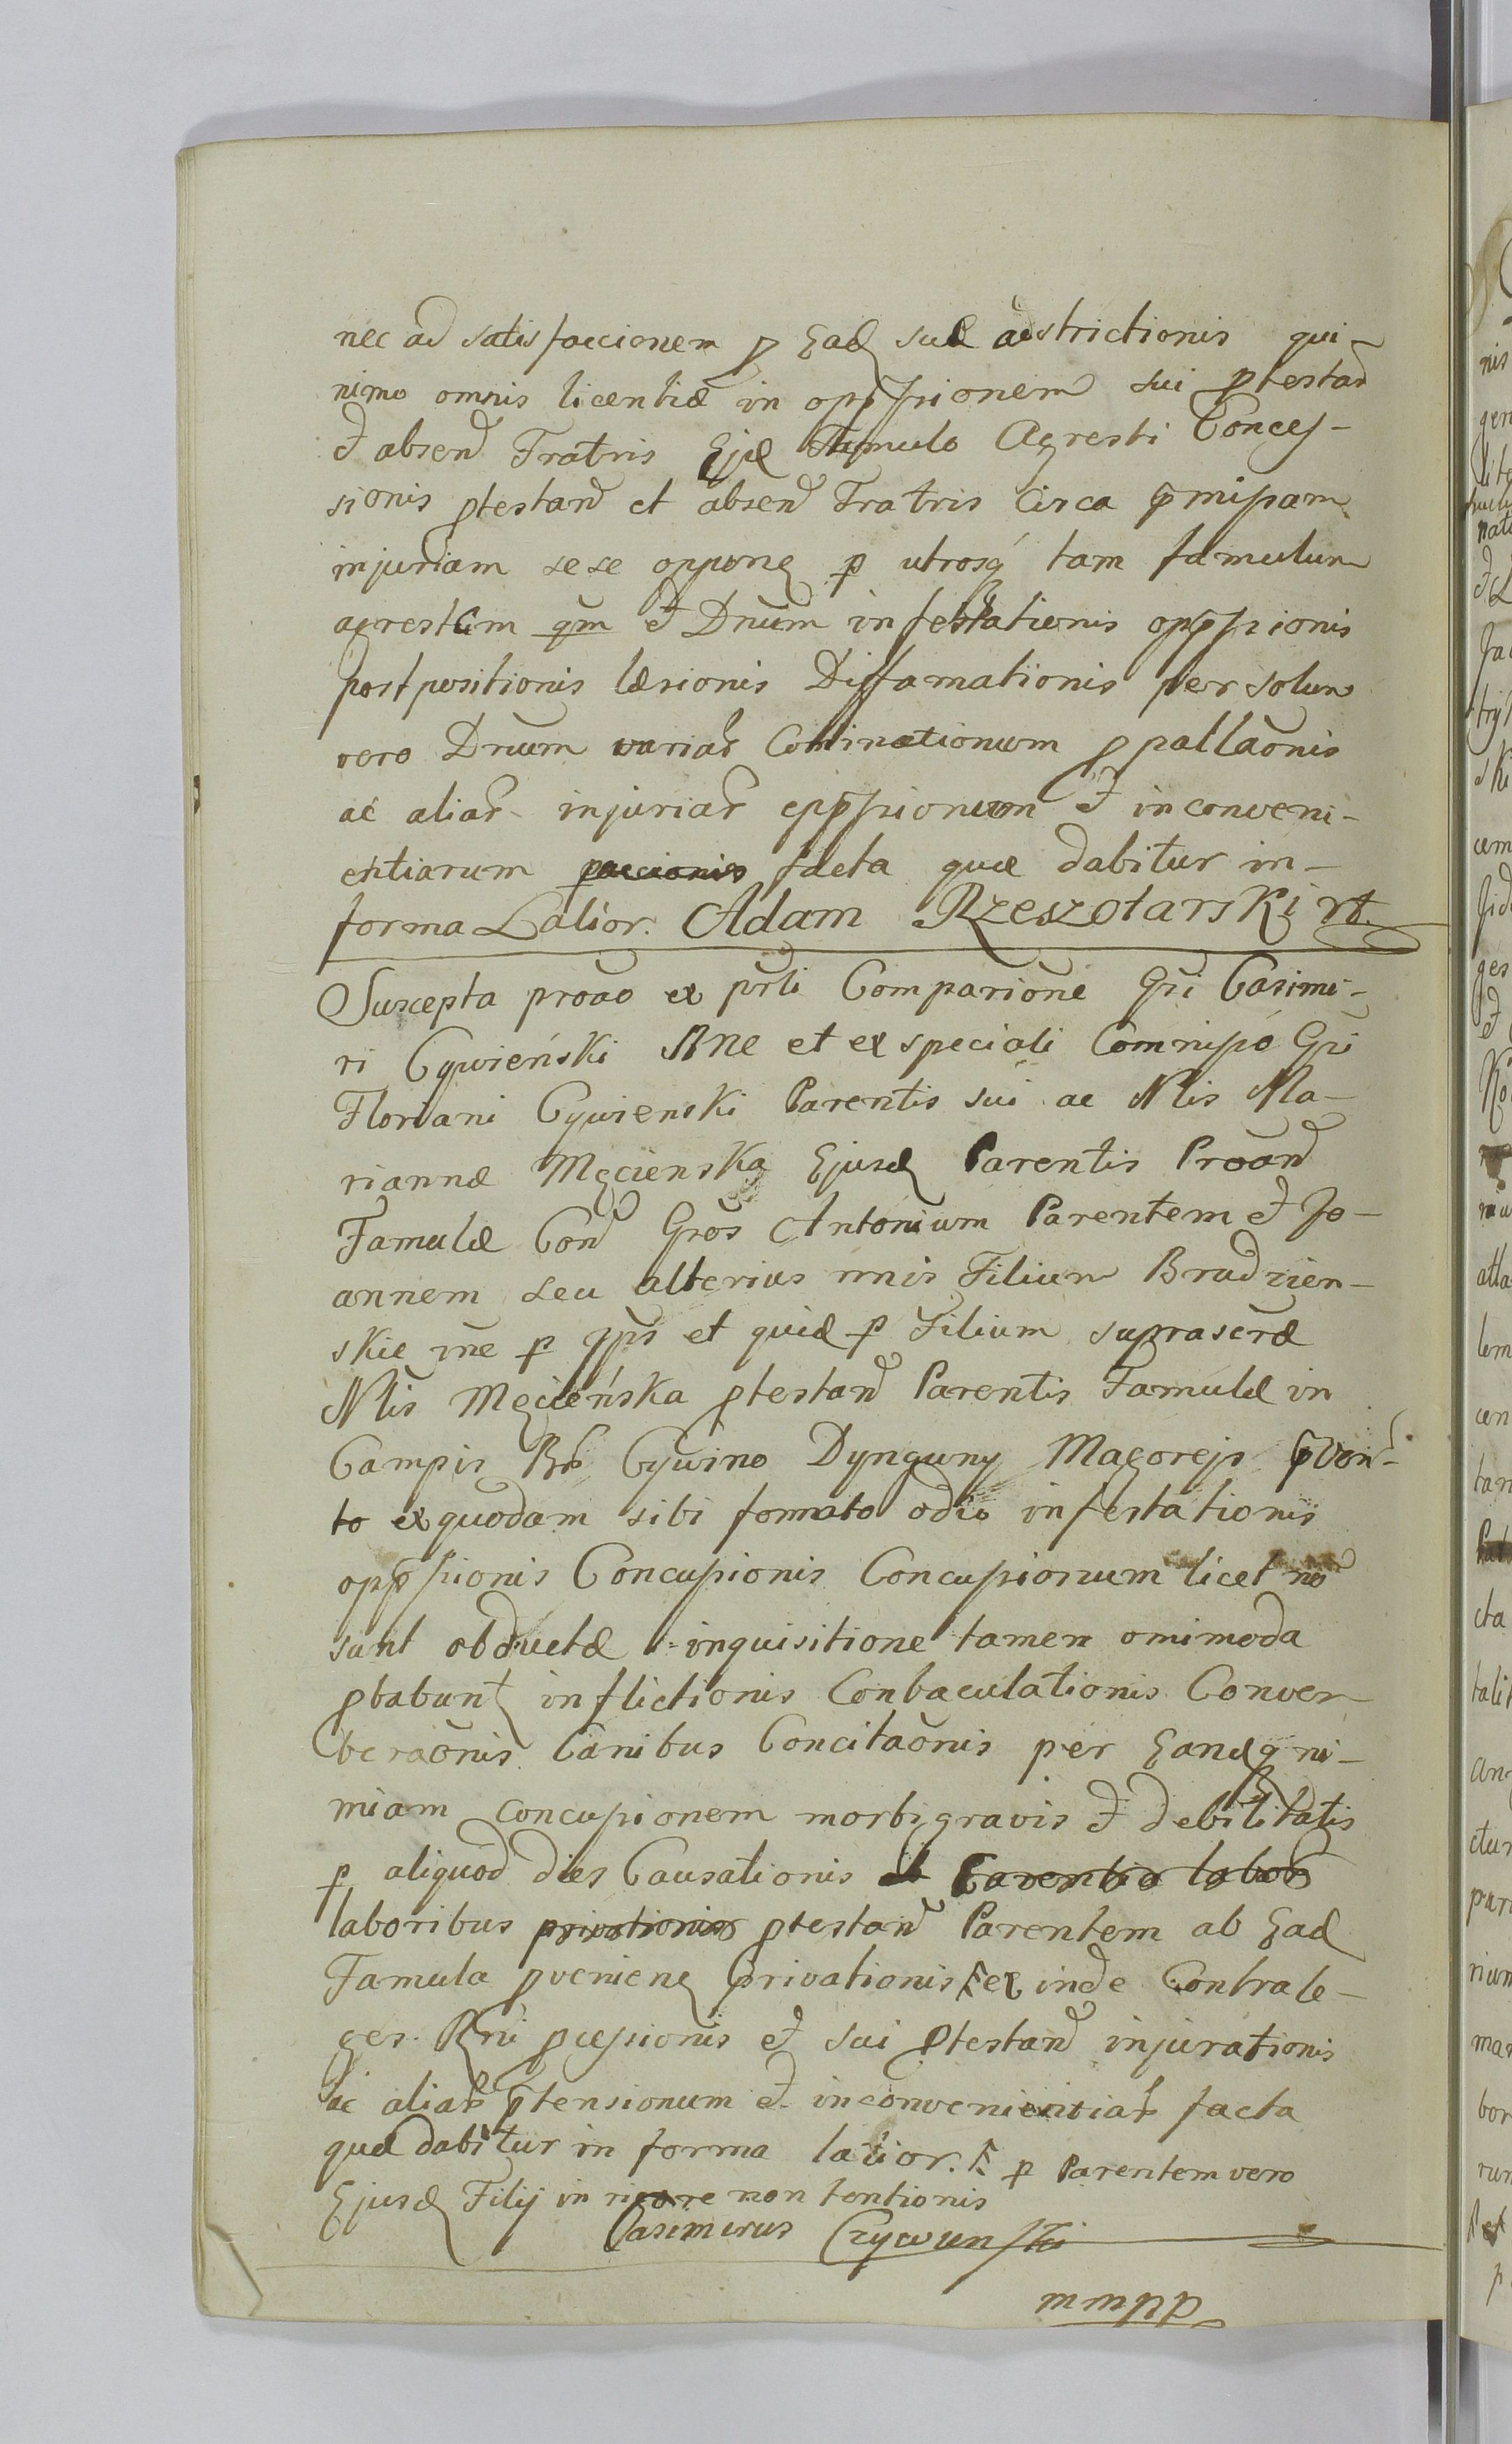 nec ad satisfaccionem p Ead suæ adstrictionis qui-
nimo omnis licentiæ in opp̄ssionem sui ptestan̄
et absen̄ Fratris Ejæ Famulo Agresti Conces-
sionis ptestan̄ et absen̄ Fratris Circa p̄missam
injuriam sese oppone p utrosq́ tam famulum
agrestem qm̄ et Dnūm infestationis opp̄ssionis
postpositionis læsionis Diffamationis per solum
vero Dnūm variar̄ Cominationum ppallaōnis
ac aliar̄ injuriar̄ opp̄ssionum et inconveni-
entiarum faeta quæ dabitur in-
forma Latior. Adam Rzeszotarski rt.
Suscepta proāo ex prl̄i Comparione Gri Casimi-
ri Cywieński SRNE et ex speciali Commisso Gri
Floriani Cywienski Parentis sui ac Nlis Ma-
riannæ Męcienska Ejusd Parentis Proān̄
Famulæ Con̄ Gros Antonium Parentem et Jo-
annem seu alterius nnis Filium Brudzien-
skie ine p ips et quid p Filium suprascræ
Nlis Męcieńska ptestan̄ Parentis Famulæ in
Campis Bb Cywino Dynguny Magorejs p̄ven-
to ex quodam sibi formato odio infestationis
opp̄ssionis Concussionis Concussionum licet nō
sunt obductæ inquisitione tamen omimoda
pbabunt inflictionis Conbaculationis Conver-
beraōnis Canibus Concitaōnis per Eandq́ ni-
miam concussionem morbi gravis et debilitatis
p aliquod dies Causationis ab Parentis labor
laboribus privationis ptestan̄ Parentem ab Ead
Famula pveniene privationis ex inde Contra le-
ges Rgni pcessionis et sui Ptestan̄ injurationis
ac aliar̄ p̄tensionum et inconvenientiar̄ facta
quæ dabitur in forma latior. p Parentem vero
Ejusd Filij in rigore non tentionis
Casimirus Czywienski
mmpp